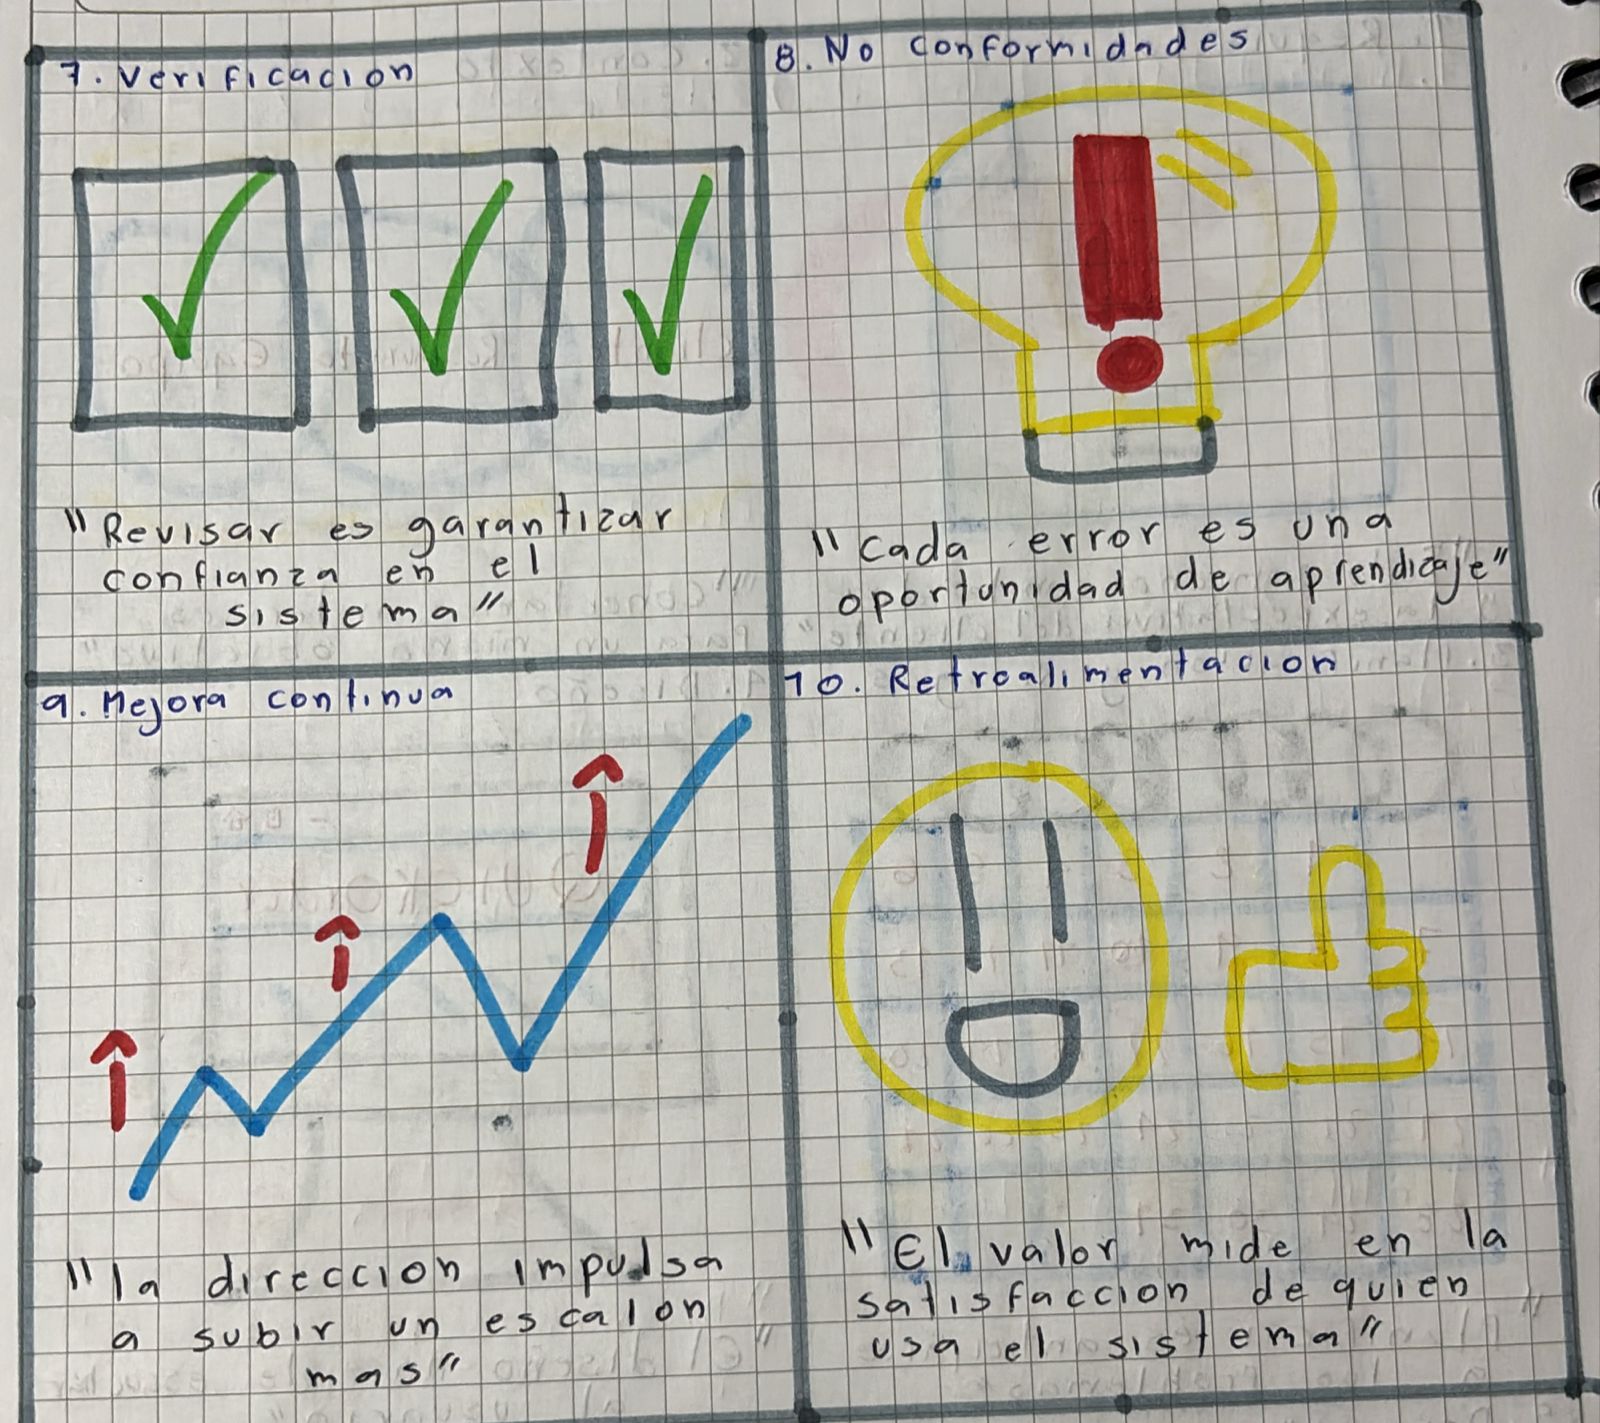 7. Verificacion
"Revisar es garantizar
confianza en el
sistema"
8. No conformidades
"cada error es una
oportunidad de aprendizaje"
9. Mejora continua
"la direccion impulsa
a subir un escalon
mas"
10. Retroalimentacion
"El valor mide en la
satisfaccion de quien
usa el sistema"